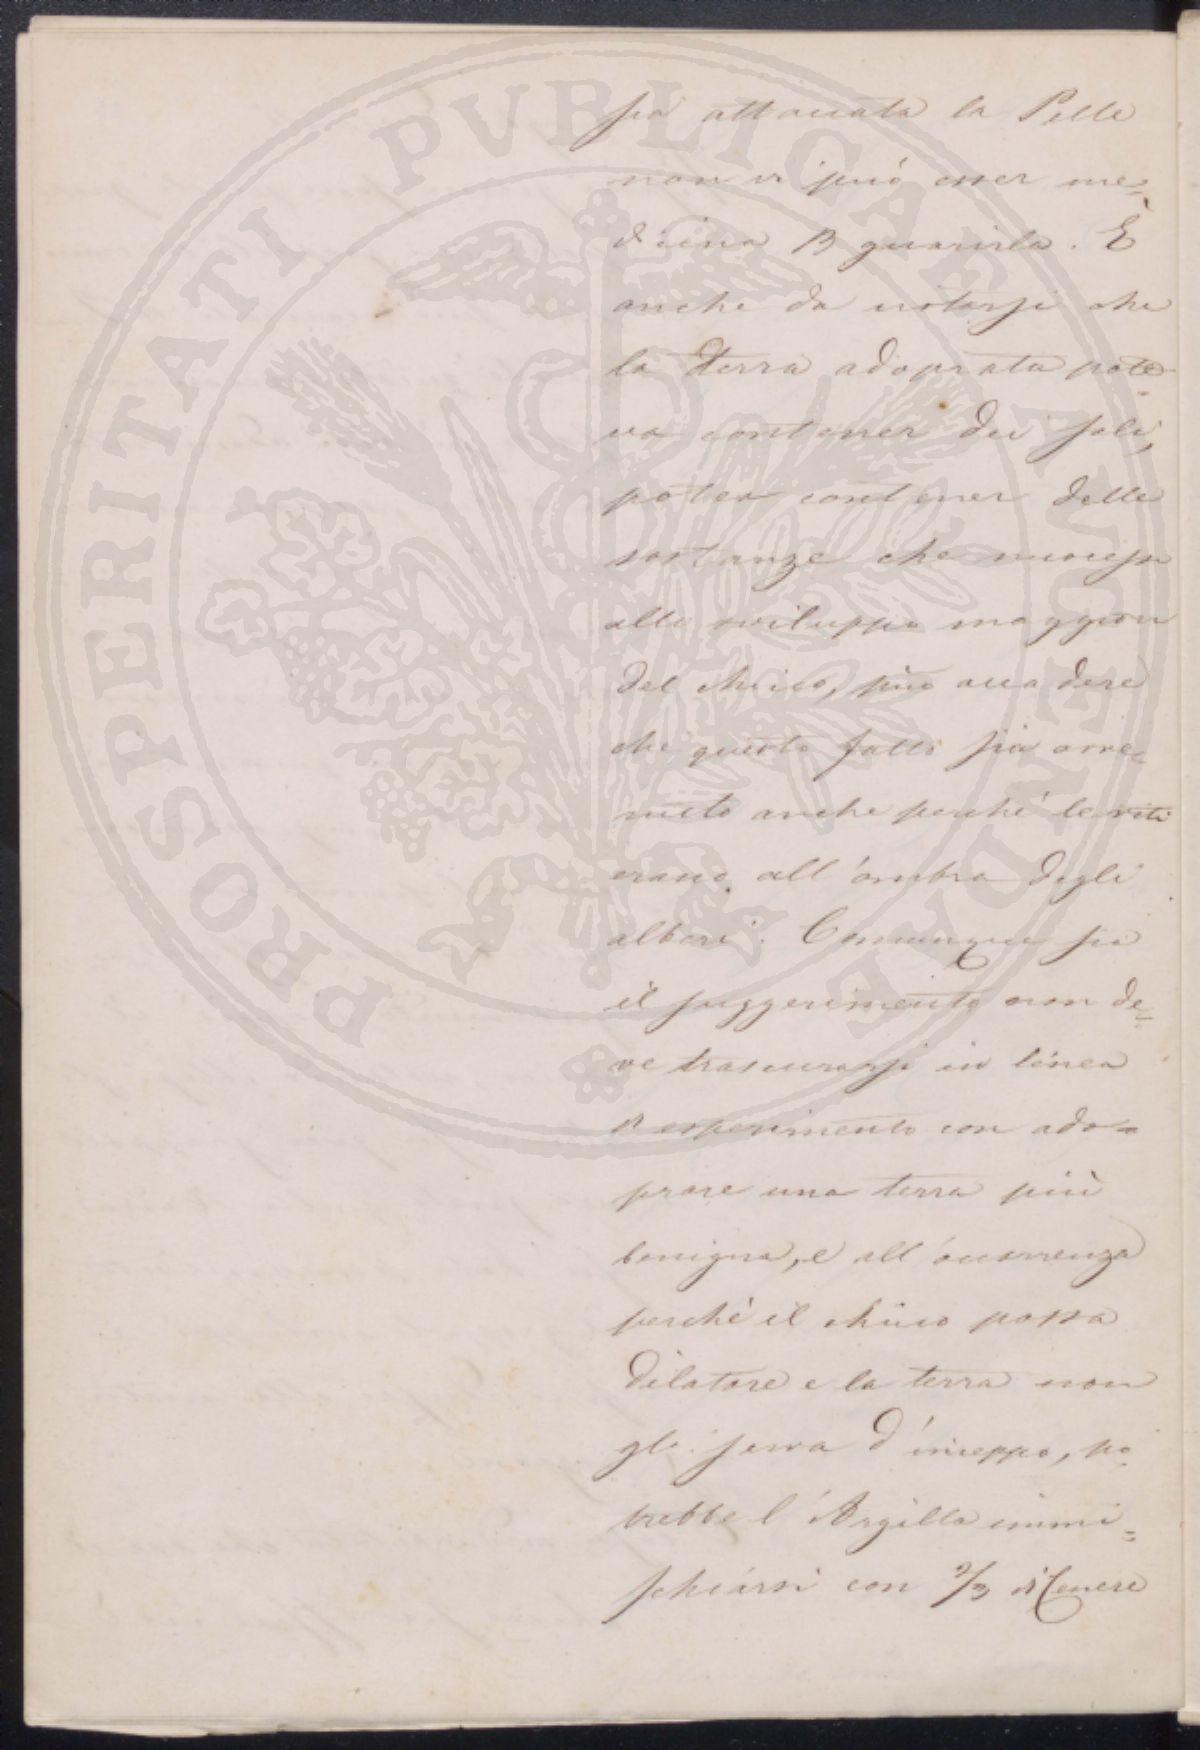 PROSPERITATI PVBLICAE AVGENDAE
sia attaccata la Pelle
non vi può esser me=
dicina p guarirla. È
anche da notarsi che
la terra adoprata pote=
va contener dei sali,
potea contener delle
sostanze che nuocesse
allo sviluppo maggior
del chicco, può accadere
che questo fatto sia avve=
nuto anche perché le viti
erano all'ombra degli
alberi. Comunque sia
il suggerimento non de=
ve trascurarsi in linea
d'esperimento con ado=
prare una terra più
benigna, e all'occorrenza
perchè il chicco possa
dilatare e la terra non
gli serva d'inceppo, po=
trebbe l'Argilla immi=
schiarsi con 2/3 di Cenere